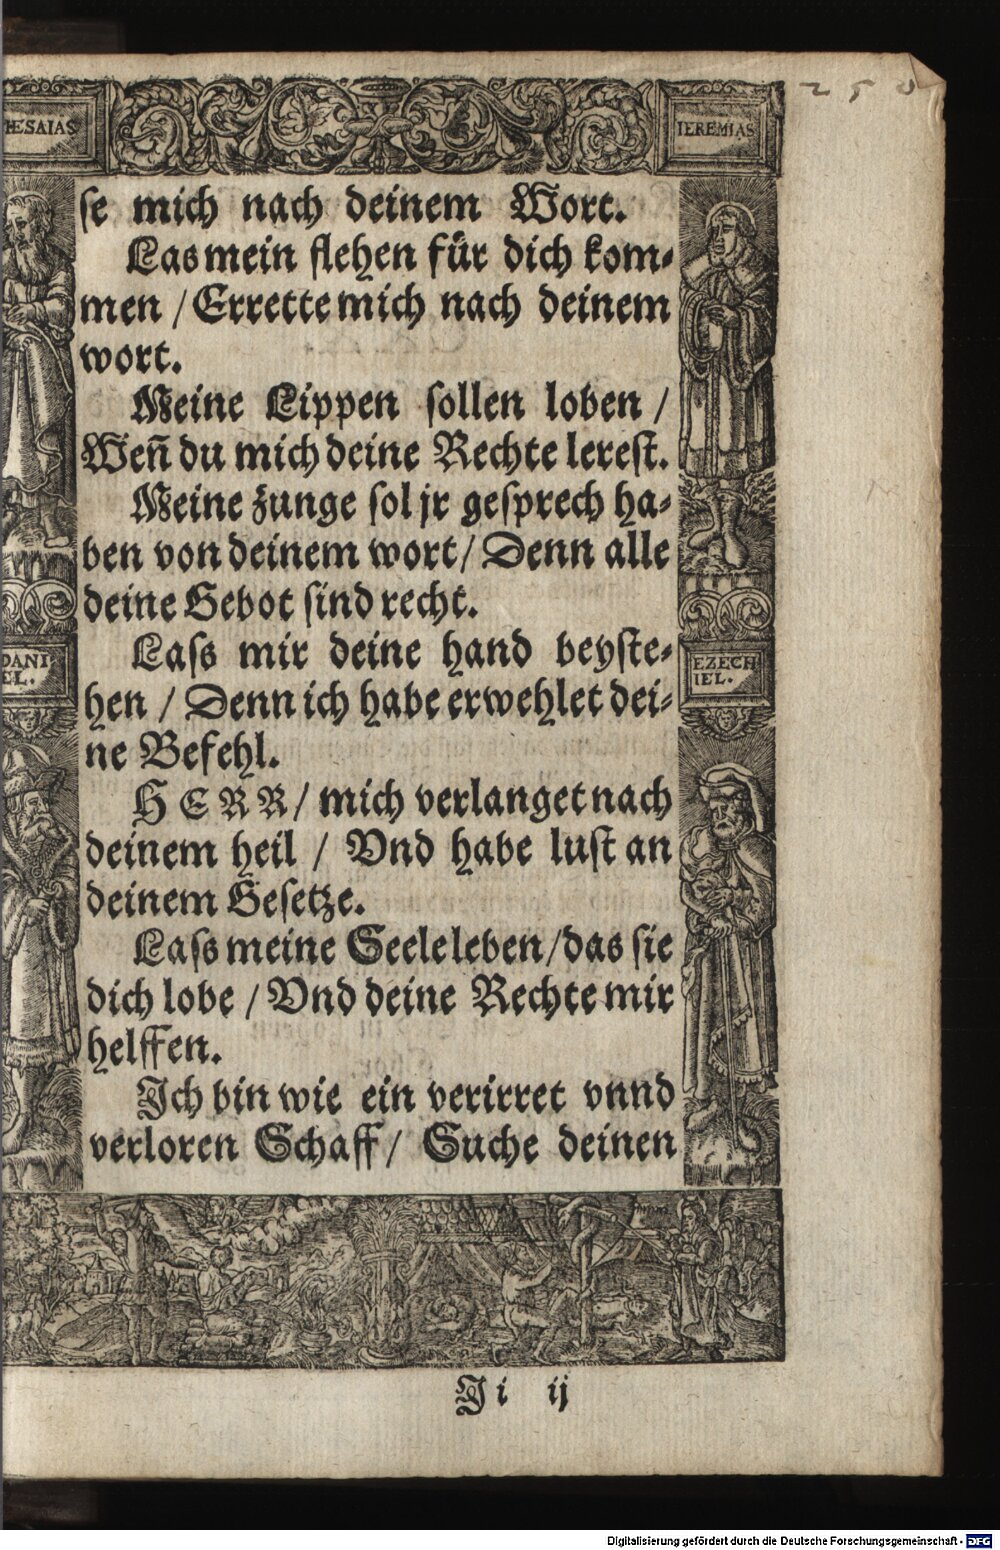 258
IESAIAS
IEREMIAS
se mich nach deinem Wort.
Las mein flehen für dich kom⸗
men / Errette mich nach deinem
wort.
Meine Lippen sollen loben /
Weñ du mich deine Rechte lerest.
Meine zunge sol jr gesprech ha⸗
ben von deinem wort / Denn alle
deine Gebot sind recht.
Lass mir deine hand beyste⸗
hen / Denn ich habe erwehlet dei⸗
ne Befehl.
HERR / mich verlanget nach
deinem heil / Vnd habe lust an
deinem Gesetze.
Lass meine Seele leben / das sie
dich lobe / Vnd deine Rechte mir
helffen.
Ich bin wie ein verirret vnnd
verloren Schaff / Suche deinen
DANI
EL.
EZECH
IEL.
Ji ij
Digitalisierung gefördert durch die Deutsche Forschungsgemeinschaft - DFG